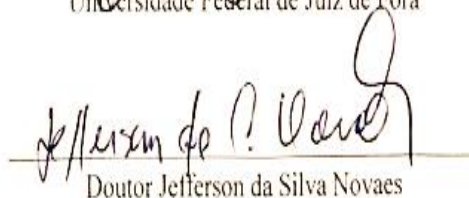 Universidade Federal de Juiz de Fora
Jefferson da S. Novaes
Doutor Jefferson da Silva Novaes